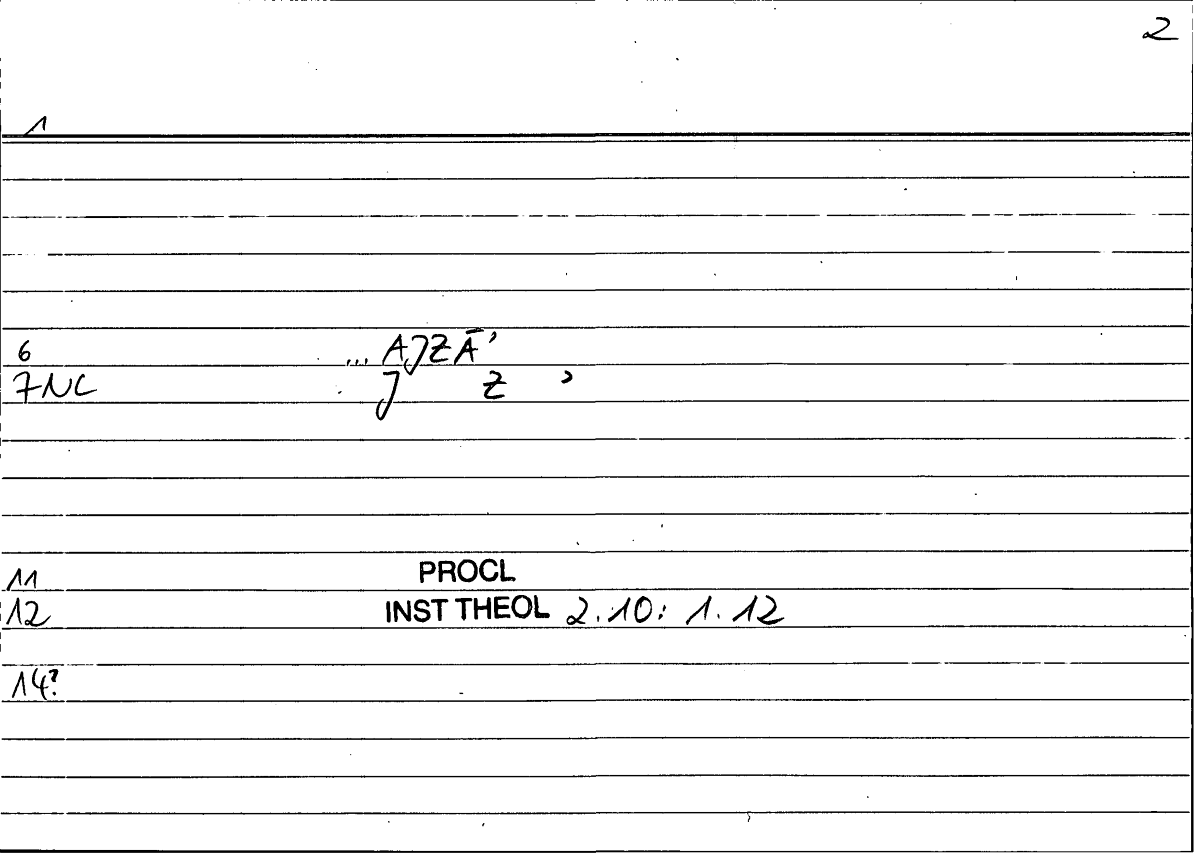 2
1
6 ... AJZĀʾ
7NC J Z ʾ
11 PROCL
12 INST THEOL 2.10: 1.12
14?